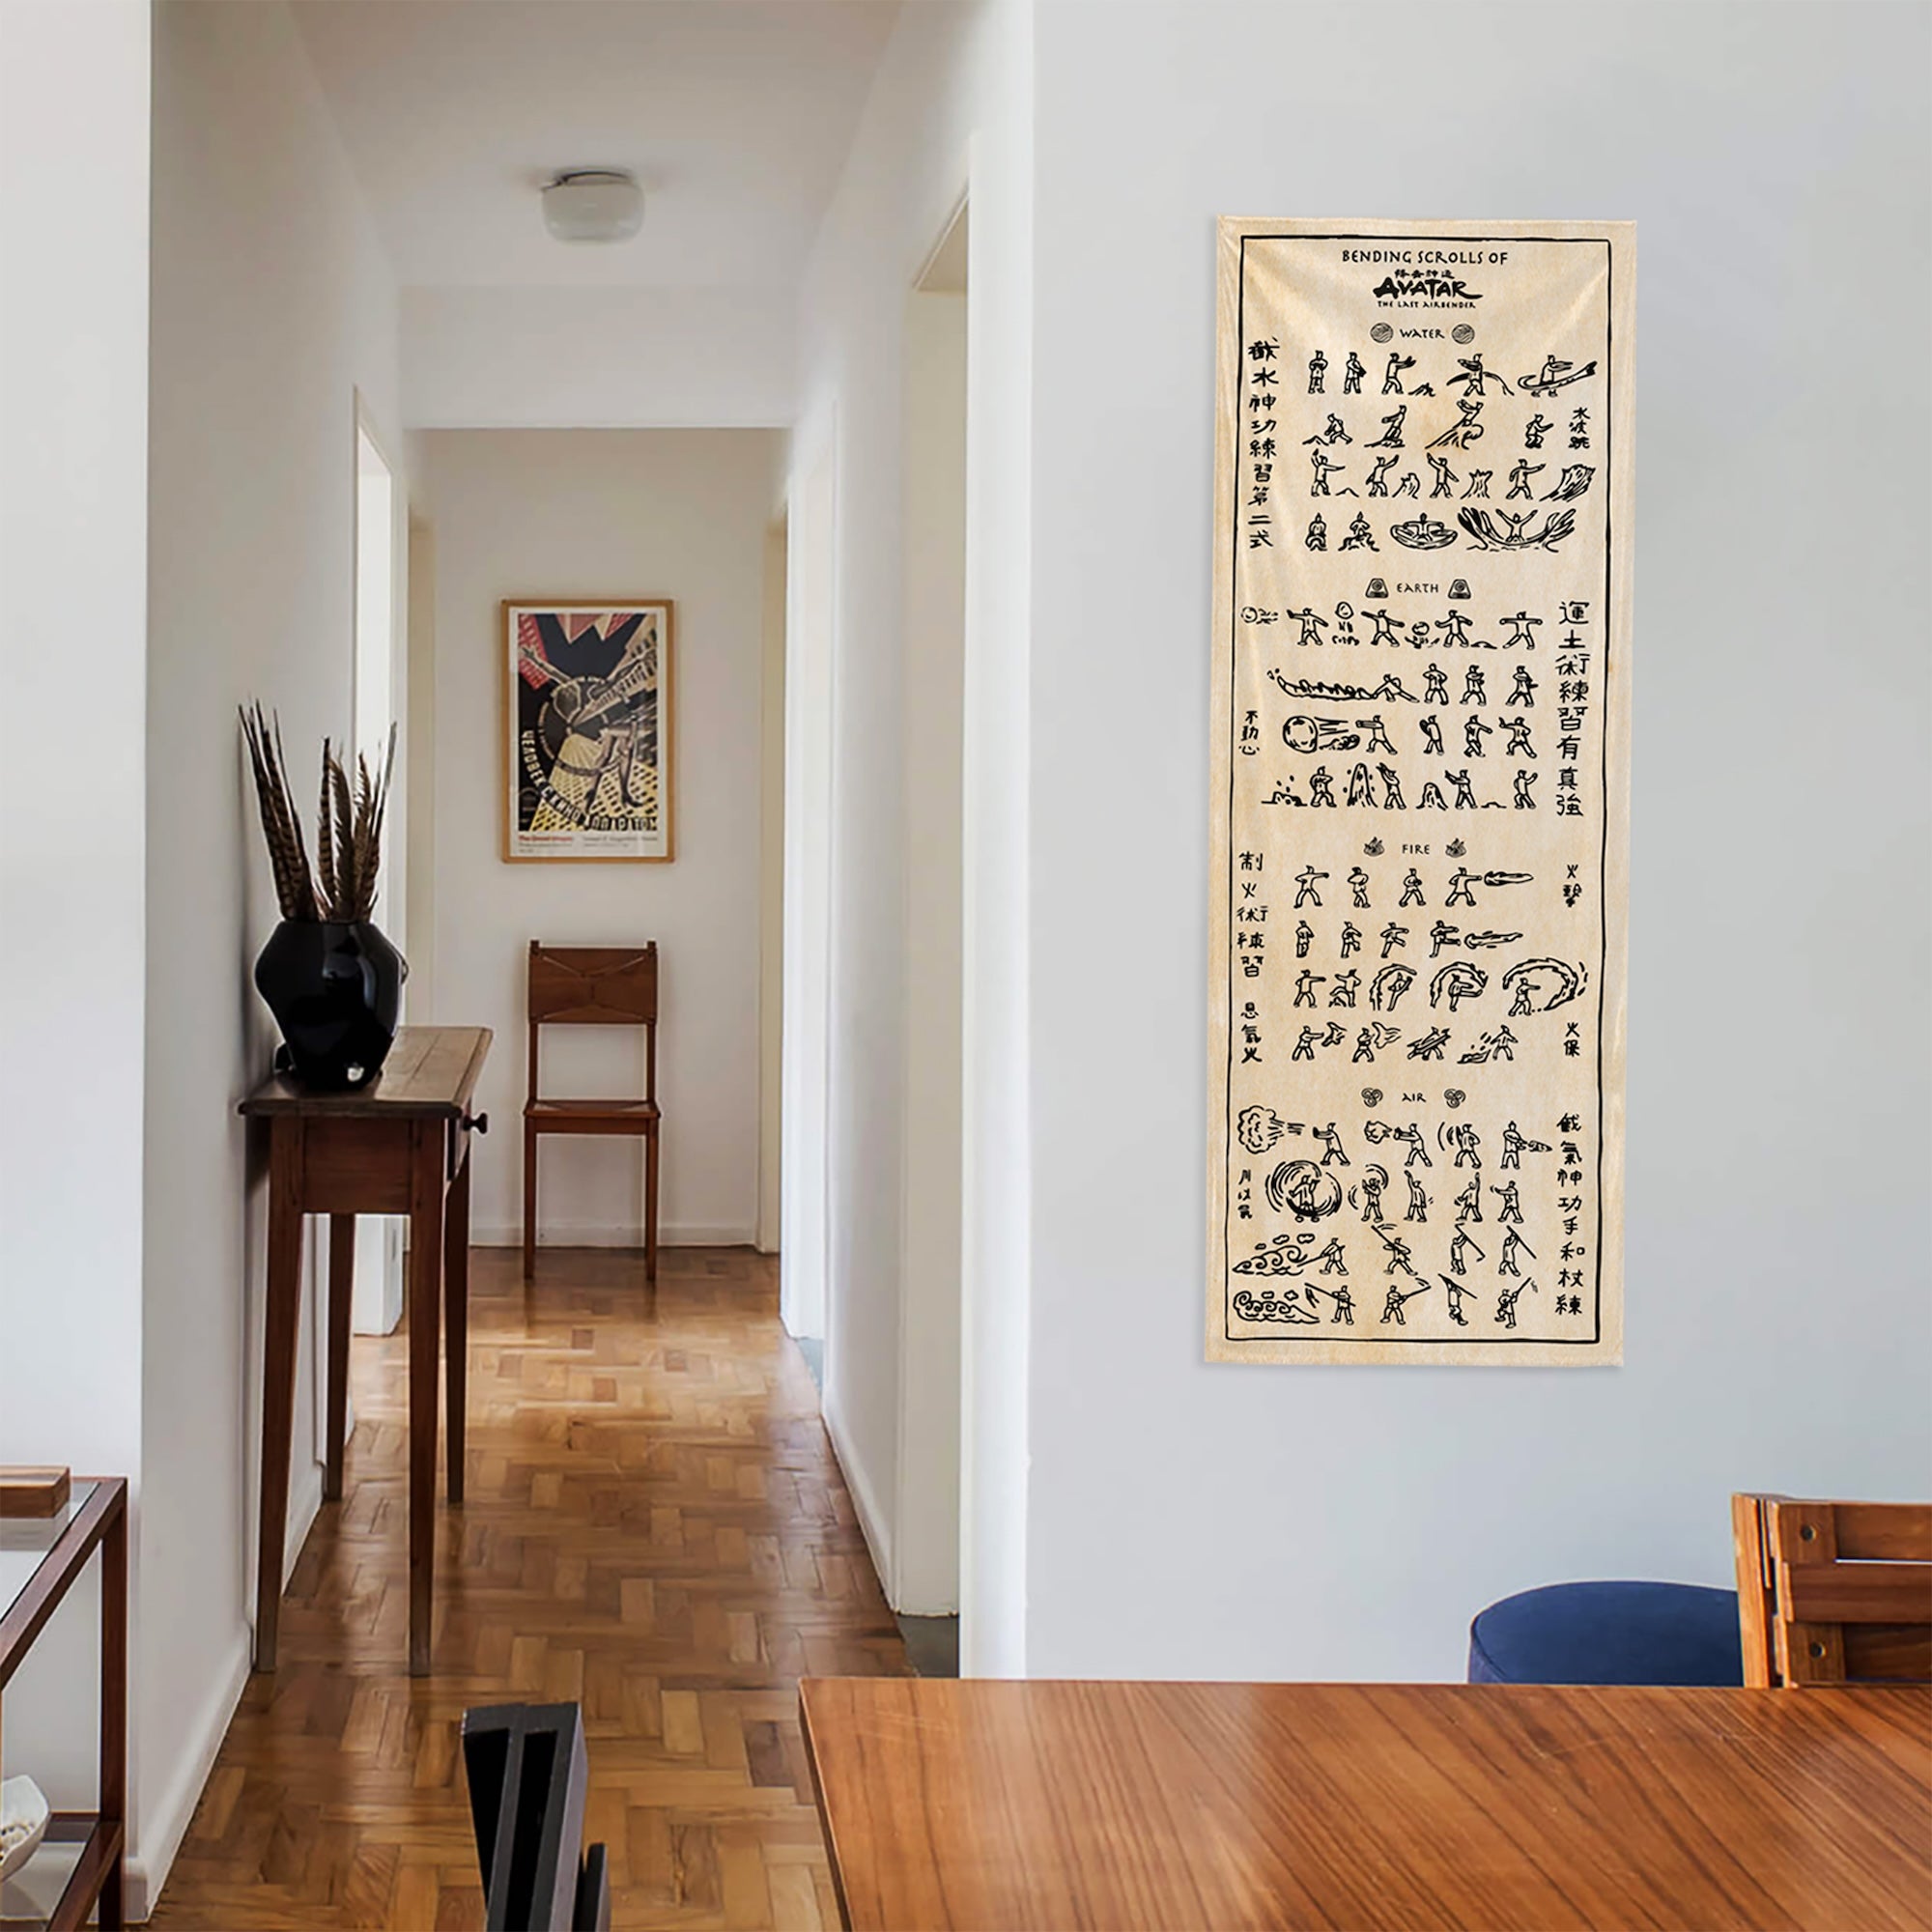 BENDING SCROLLS OF
降去神通
AVATAR
THE LAST AIRBENDER
WATER
截水神功練習第二式
水波跳
EARTH
運土術練習有真強
不動心
FIRE
制火術練習
息氣火
火擊
火保
AIR
截氣神功手和杖練
ЧЕЛОВЕК
С КИНО
АППАРАТОМ